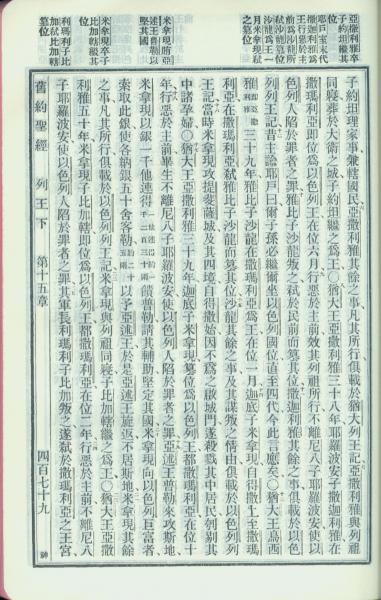 亞撒利雅卒
子約坦繼其
位
耶戶家末代
撒迦利雅爲
王行惡於主
前爲沙龍所
弒沙龍篡位
沙龍爲王一
月米拿現弒
之篡位
米拿現賂亞
述王普勒以
堅其國
米拿現卒子
比加轄繼其
位
利瑪利子比
加弒比加轄
篡位
子約坦理家事兼轄國民亞撒利雅其餘之事凡其所行俱載於猶大列王記亞撒利雅與列祖
同寢葬於大衛之城子約坦繼之爲王〇猶大王亞撒利雅三十八年耶羅波安子撒迦利雅在
撒瑪利亞即位爲以色列王在位六月行惡於主前效其列祖所行不離尼八子耶羅波安使以
色列人陷於罪者之罪雅比子沙龍叛之弒於民前而篡其位撒迦利雅其餘之事俱載於以色
列列王記昔主諭耶戶曰爾子孫必繼爾坐以色列國位直至四代今此言應矣〇猶大王烏西
雅即亞撒利雅三十九年雅比子沙龍在撒瑪利亞爲王在位一月迦底子米拿現自得撒上至撒瑪
利亞在撒瑪利亞弒雅比子沙龍而篡其位沙龍其餘之事及其謀叛之情由俱載於以色列列
王記當時米拿現攻提斐薩城及其四境自得撒始因不爲之啟城門遂殺戮其中居民刳剔其
中諸孕婦〇猶大王亞撒利雅三十九年迦底子米拿現篡位爲以色列王都撒瑪利亞在位十
年行惡於主前畢生不離尼八子耶羅波安使以色列人陷於罪者之罪亞述王普勒來攻斯地
米拿現以銀一千他連得饋普勒請其輔助堅定其國米拿現向以色列巨富者
索取此銀使各納銀五十舍客勒約二十五兩以予亞述王於是亞述王旋返不居斯地米拿現其餘
之事凡其所行俱載於以色列列王記米拿現與列祖同寢子比加轄繼之爲王〇猶大王亞撒
利雅五十年米拿現子比加轄即位爲以色列王都撒瑪利亞在位二年行惡於主前不離尼八
子耶羅波安使以色列人陷於罪者之罪其軍長利瑪利子比加叛之遂弒於撒瑪利亞之王宮
舊約聖經 列王下 第十五章 四百七十九